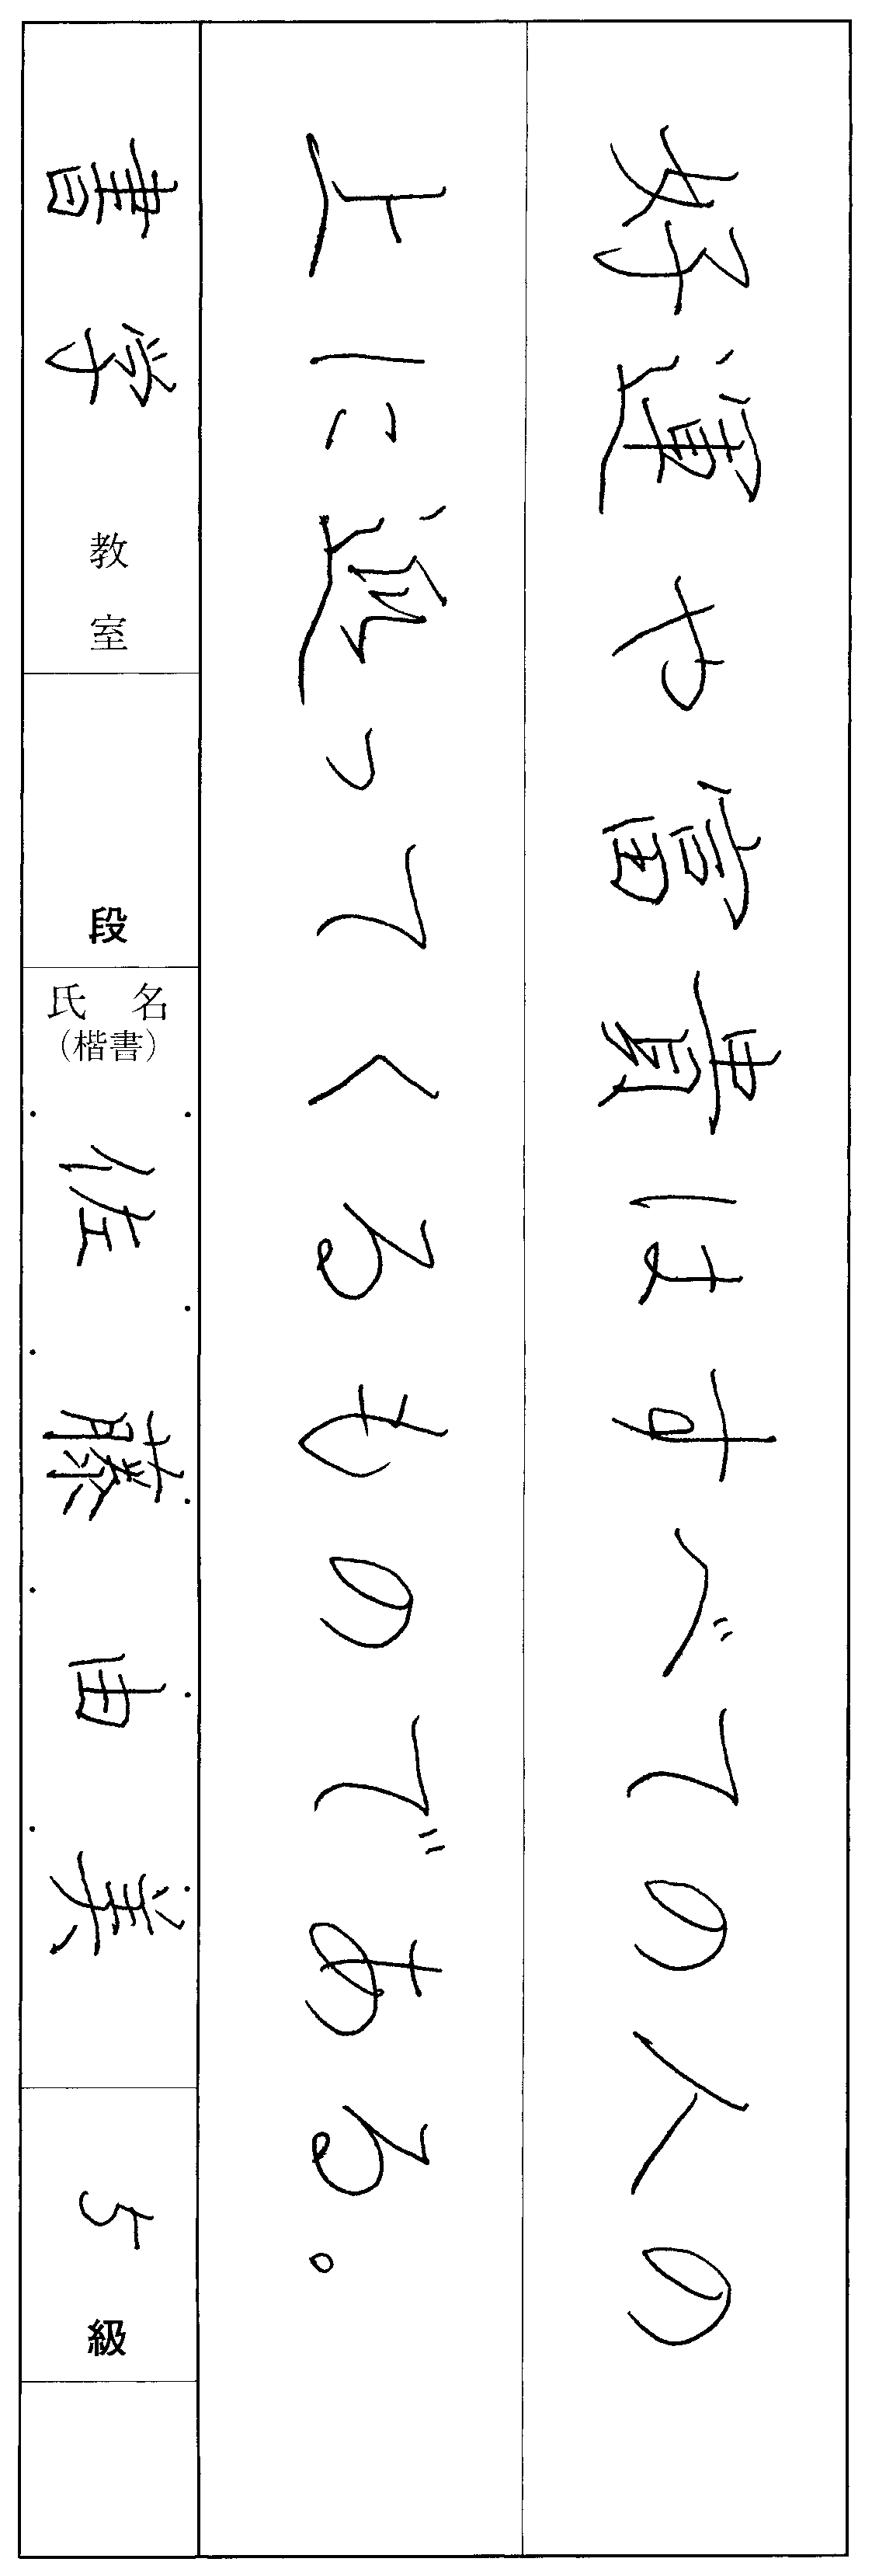 好運や富貴はすべての人の
上に返ってくるものである。
書学教室
段
氏名
(楷書)
佐藤由美
5級